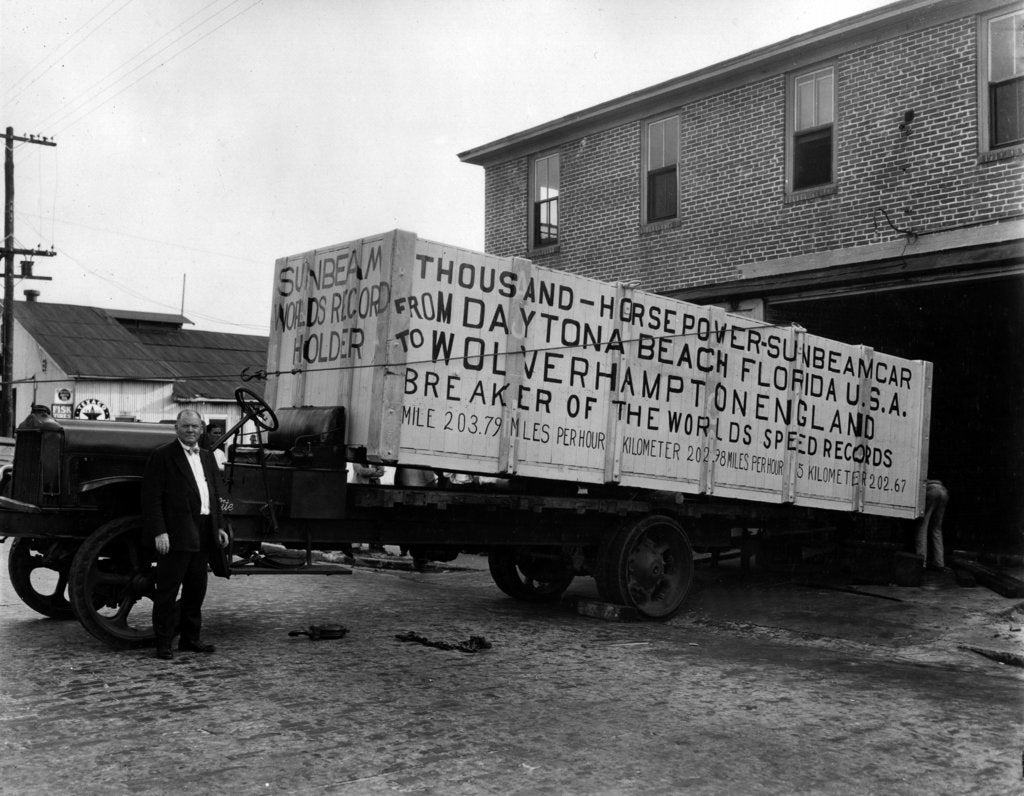 SUNBEAM
WORLDS RECORD
HOLDER
THOUSAND-HORSEPOWER-SUNBEAMCAR
FROM DAYTONA BEACH FLORIDA U.S.A.
TO WOLVERHAMPTON ENGLAND
BREAKER OF THE WORLDS SPEED RECORDS
MILE 203.79 MILES PER HOUR KILOMETER 202.98 MILES PER HOUR 5 KILOMETER 202.67
FISK
TIRES
TEXACO